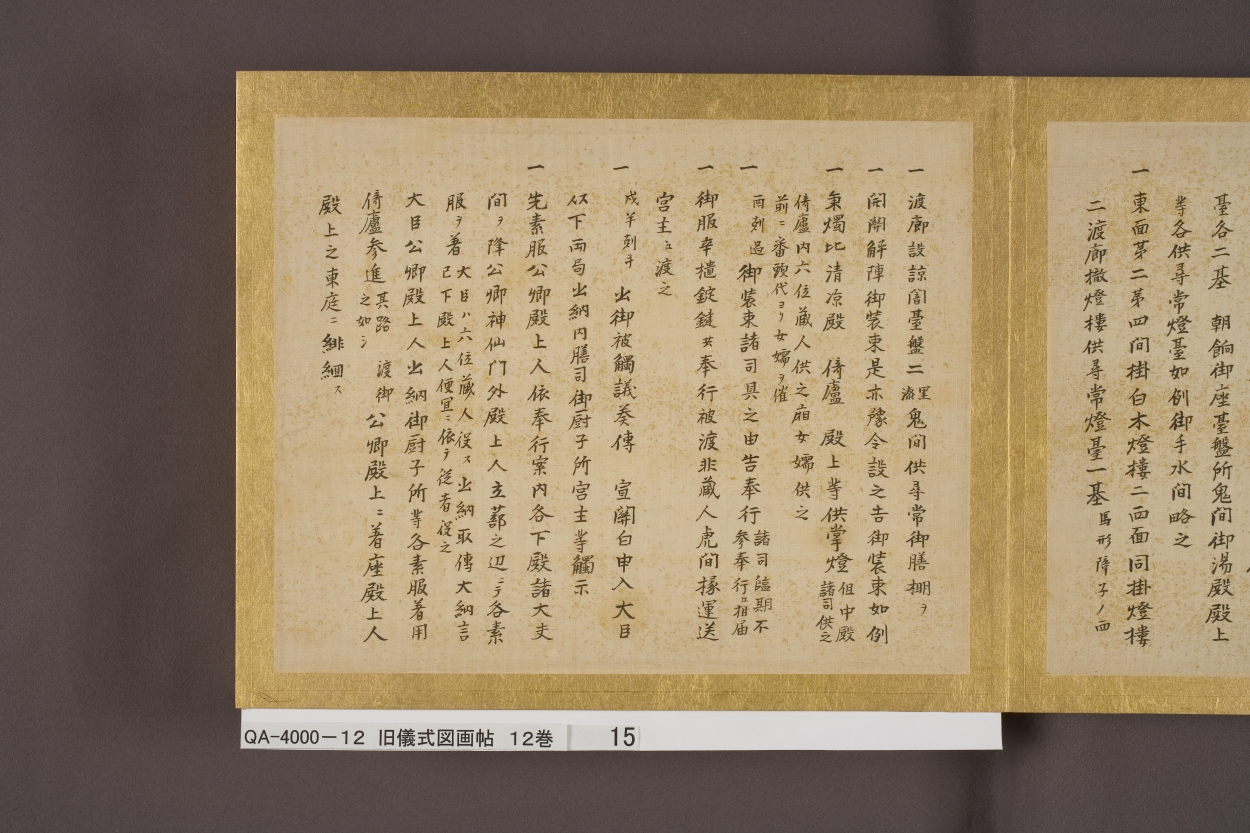 臺各二基　朝餉御座臺盤所鬼間御湯殿殿上
等各供尋常燈臺如例御手水間略之
一 東面第二第四間掛白木燈樓二西面同掛燈樓
二渡廊撤燈樓供尋常燈臺一基馬形障子ノ西
一 渡廊設諒闇臺盤二黒漆鬼間供尋常御膳棚ヲ
一 開闢解陣御裝束是亦豫令設之吉御裝束如例
一 秉燭比清凉殿　倚廬　殿上等供掌燈但中殿諸司供之
倚廬内六位蔵人供之廂女孺供之
前ニ番頭代ヨリ女孺ヲ催
一 酉刻過御裝束諸司具之由告奉行諸司臨期不参奉行ニ相届
一 御服辛櫃錠鍵共奉行被渡非蔵人虎間掾運送
宮主ニ渡之
一 戌半刻斗　出御被觸議奏傳　宣關白申入大臣
以下両局出納内膳司御厨子所宮主等觸示
一 先素服公卿殿上人依奉行案内各下殿諸大夫
間ヲ降公卿神仙门外殿上人立蔀之辺ニテ各素
服ヲ著大臣ハ六位蔵人役ス出納取傳大納言
已下殿上人便冝ニ依テ従者役之
大臣公卿殿上人出納御厨子所等各素服著用
倚廬参進其路渡御之如シ公卿殿上ニ着座殿上人
殿上之東庭ニ緋絪ス
QA-4000－12　旧儀式図画帖　12巻　15